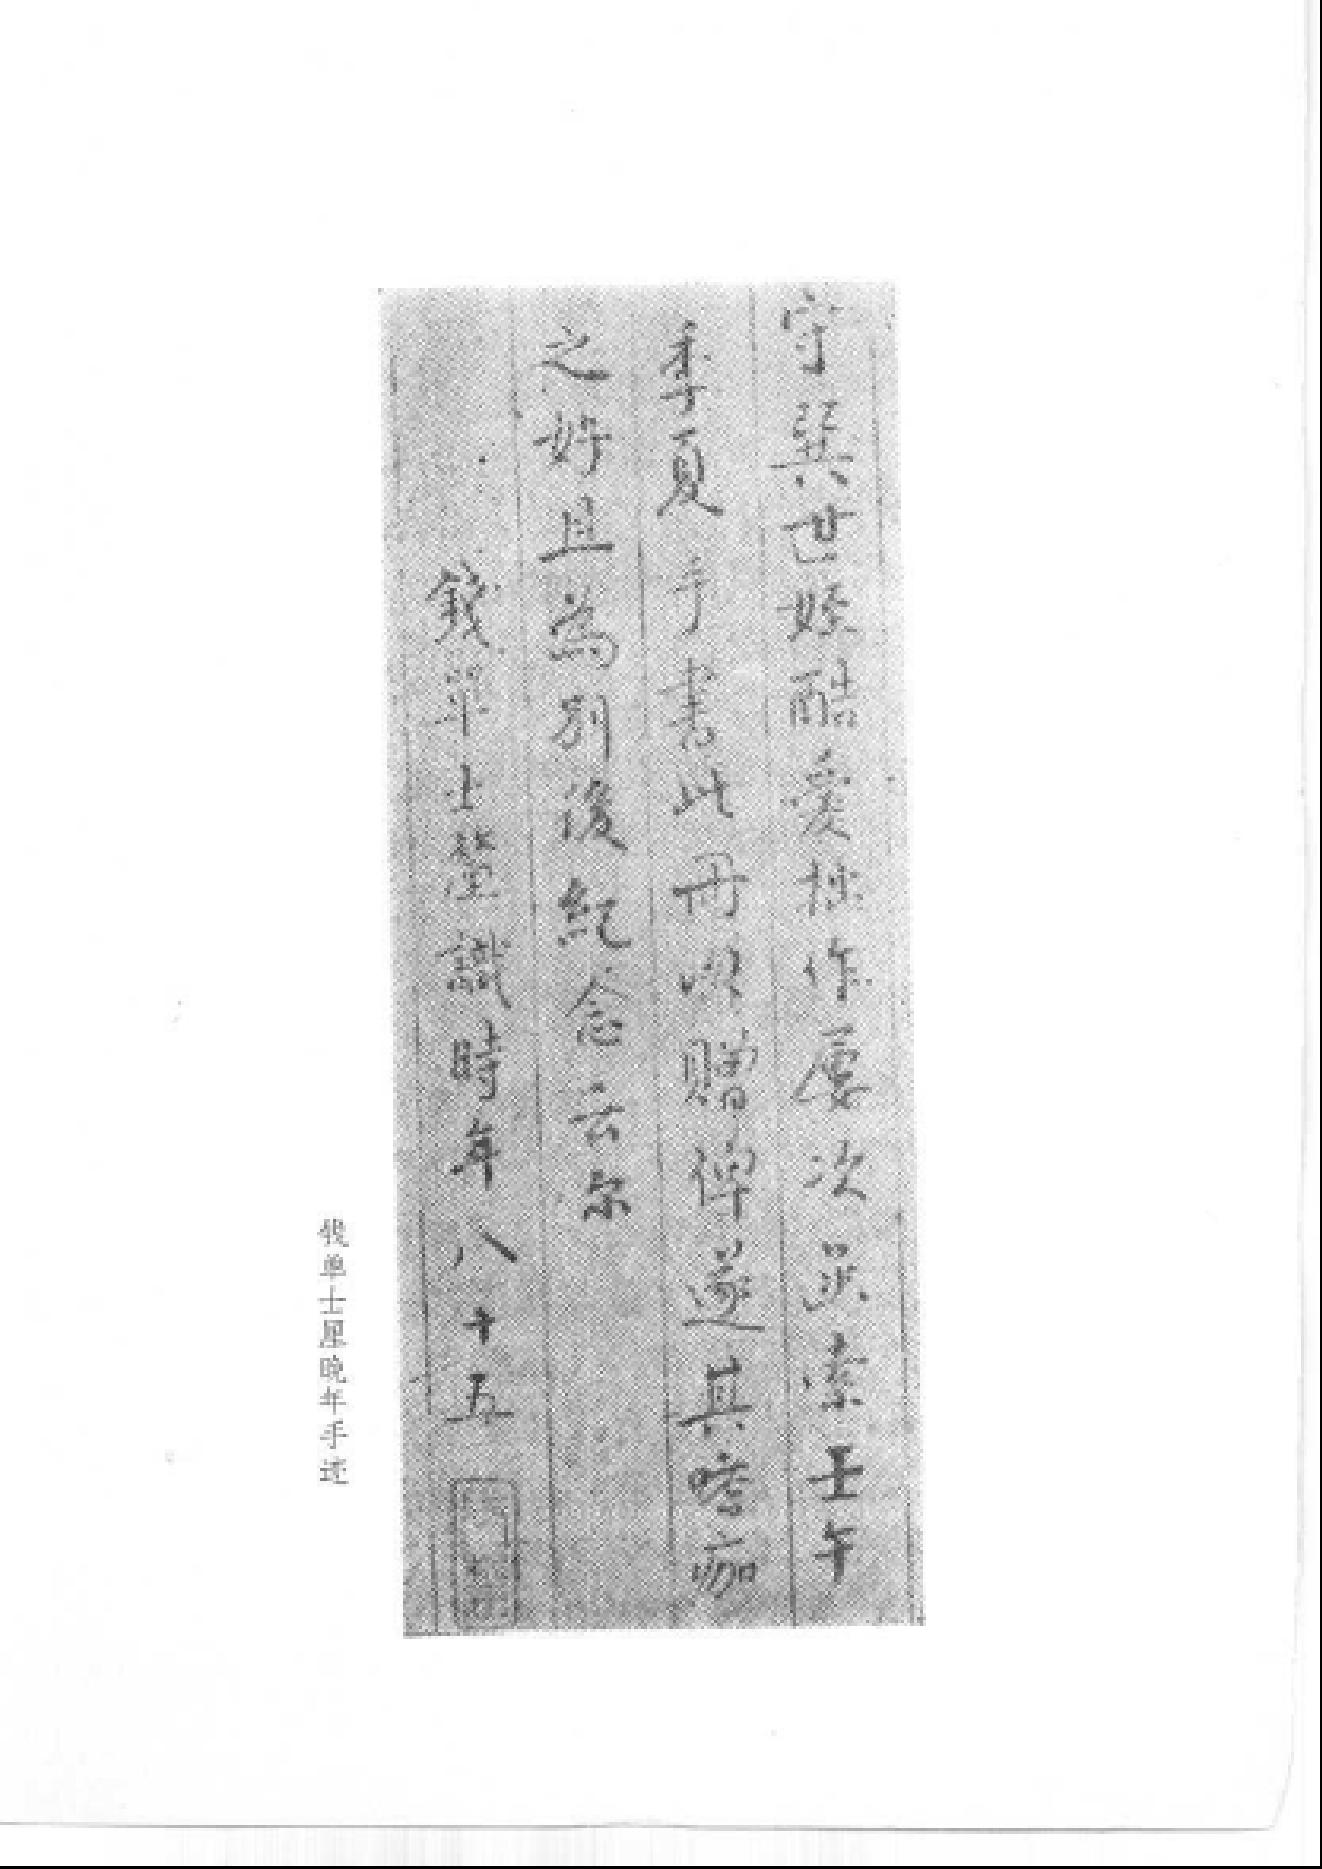 守巽世姪酷愛拙作屢次吴索壬午
季夏手書此冊以贈俾遂其嗜痂
之好且為別後紀念云尔
錢單士釐識時年八十五
钱单士厘晚年手迹